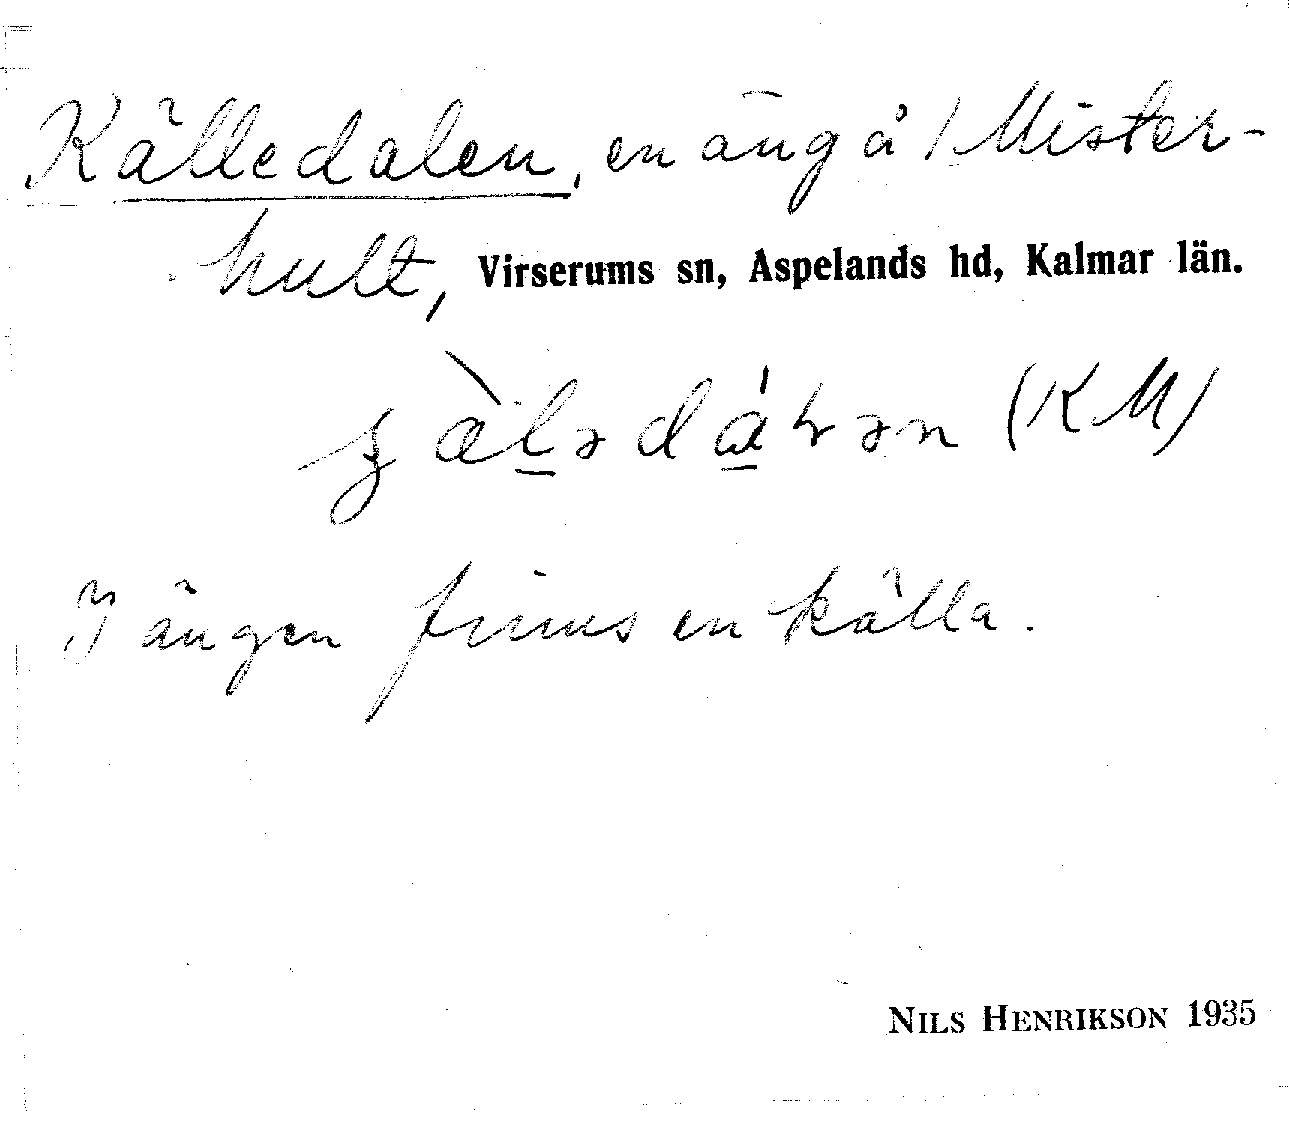 Källedalen, en äng å / Mister-
hult, Virserums sn, Aspelands hd, Kalmar län.
(KM)
I ängen finns en källa.
NILS HENRIKSON 1935